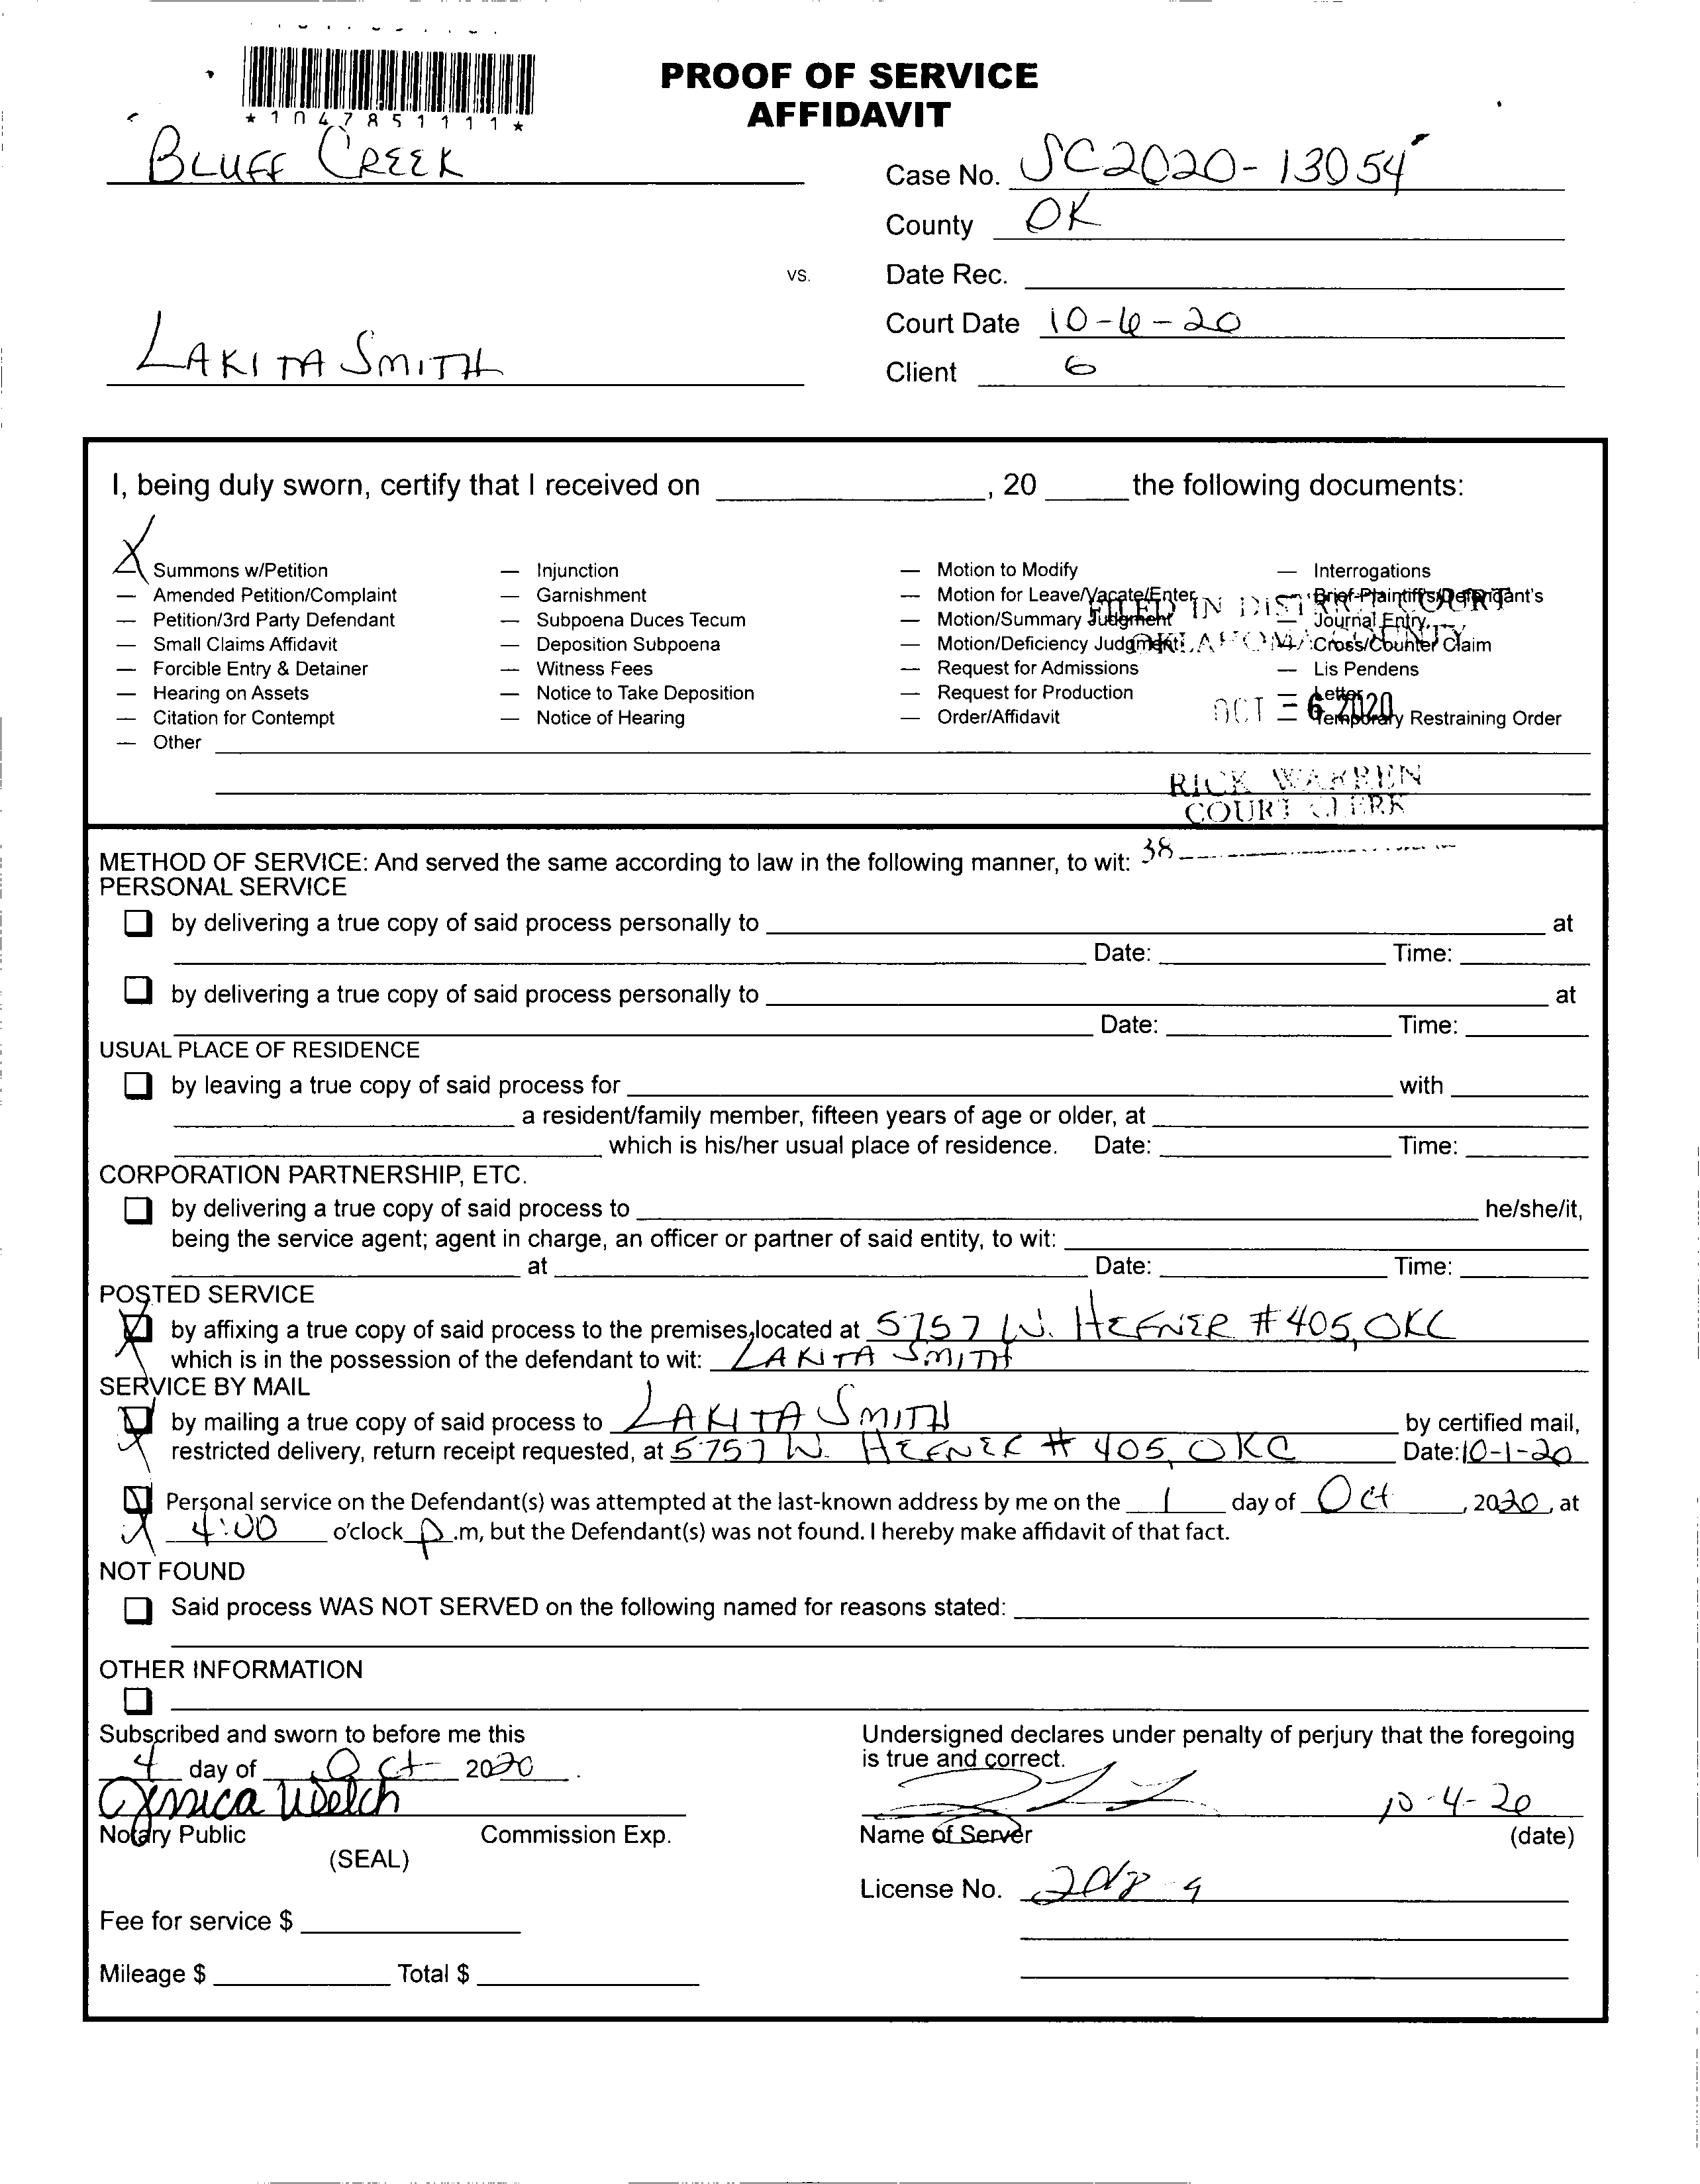 *1047851111*
PROOF OF SERVICE
AFFIDAVIT
BLUFF CREEK
Case No. SC2020-13054
County OK
vs. Date Rec.
Court Date 10-6-20
LAKITA SMITH
Client 6
I, being duly sworn, certify that I received on ____, 20 ____ the following documents:
X Summons w/Petition — Injunction — Motion to Modify — Interrogations
— Amended Petition/Complaint — Garnishment — Motion for Leave/Vacate/Enter — Brief-Plaintiff's/Defendant's
— Petition/3rd Party Defendant — Subpoena Duces Tecum — Motion/Summary Judgment — Journal Entry
— Small Claims Affidavit — Deposition Subpoena — Motion/Deficiency Judgment — Cross/Counter Claim
— Forcible Entry & Detainer — Witness Fees — Request for Admissions — Lis Pendens
— Hearing on Assets — Notice to Take Deposition — Request for Production — Letter
— Citation for Contempt — Notice of Hearing — Order/Affidavit — Temporary Restraining Order
— Other
FILED IN DISTRICT COURT
OKLAHOMA COUNTY
OCT - 6 2020
RICK WARREN
COURT CLERK
38
METHOD OF SERVICE: And served the same according to law in the following manner, to wit:
PERSONAL SERVICE
by delivering a true copy of said process personally to ____ at
Date: ____ Time: ____
by delivering a true copy of said process personally to ____ at
Date: ____ Time: ____
USUAL PLACE OF RESIDENCE
by leaving a true copy of said process for ____ with ____
a resident/family member, fifteen years of age or older, at ____
which is his/her usual place of residence. Date: ____ Time: ____
CORPORATION PARTNERSHIP, ETC.
by delivering a true copy of said process to ____ he/she/it,
being the service agent; agent in charge, an officer or partner of said entity, to wit: ____
at ____ Date: ____ Time: ____
POSTED SERVICE
X by affixing a true copy of said process to the premises, located at 5757 W. HEFNER #405, OKC
which is in the possession of the defendant to wit: LAKITA SMITH
SERVICE BY MAIL
X by mailing a true copy of said process to LAKITA SMITH by certified mail,
restricted delivery, return receipt requested, at 5757 W. HEFNER # 405, OKC Date: 10-1-20
X Personal service on the Defendant(s) was attempted at the last-known address by me on the 1 day of Oct, 2020, at
4:00 o'clock p.m, but the Defendant(s) was not found. I hereby make affidavit of that fact.
NOT FOUND
Said process WAS NOT SERVED on the following named for reasons stated:
OTHER INFORMATION
Subscribed and sworn to before me this
4 day of Oct 2020.
Jessica Welch
Notary Public Commission Exp.
(SEAL)
Undersigned declares under penalty of perjury that the foregoing
is true and correct.
10-4-20
Name of Server (date)
License No. 2018-9
Fee for service $
Mileage $ ____ Total $ ____